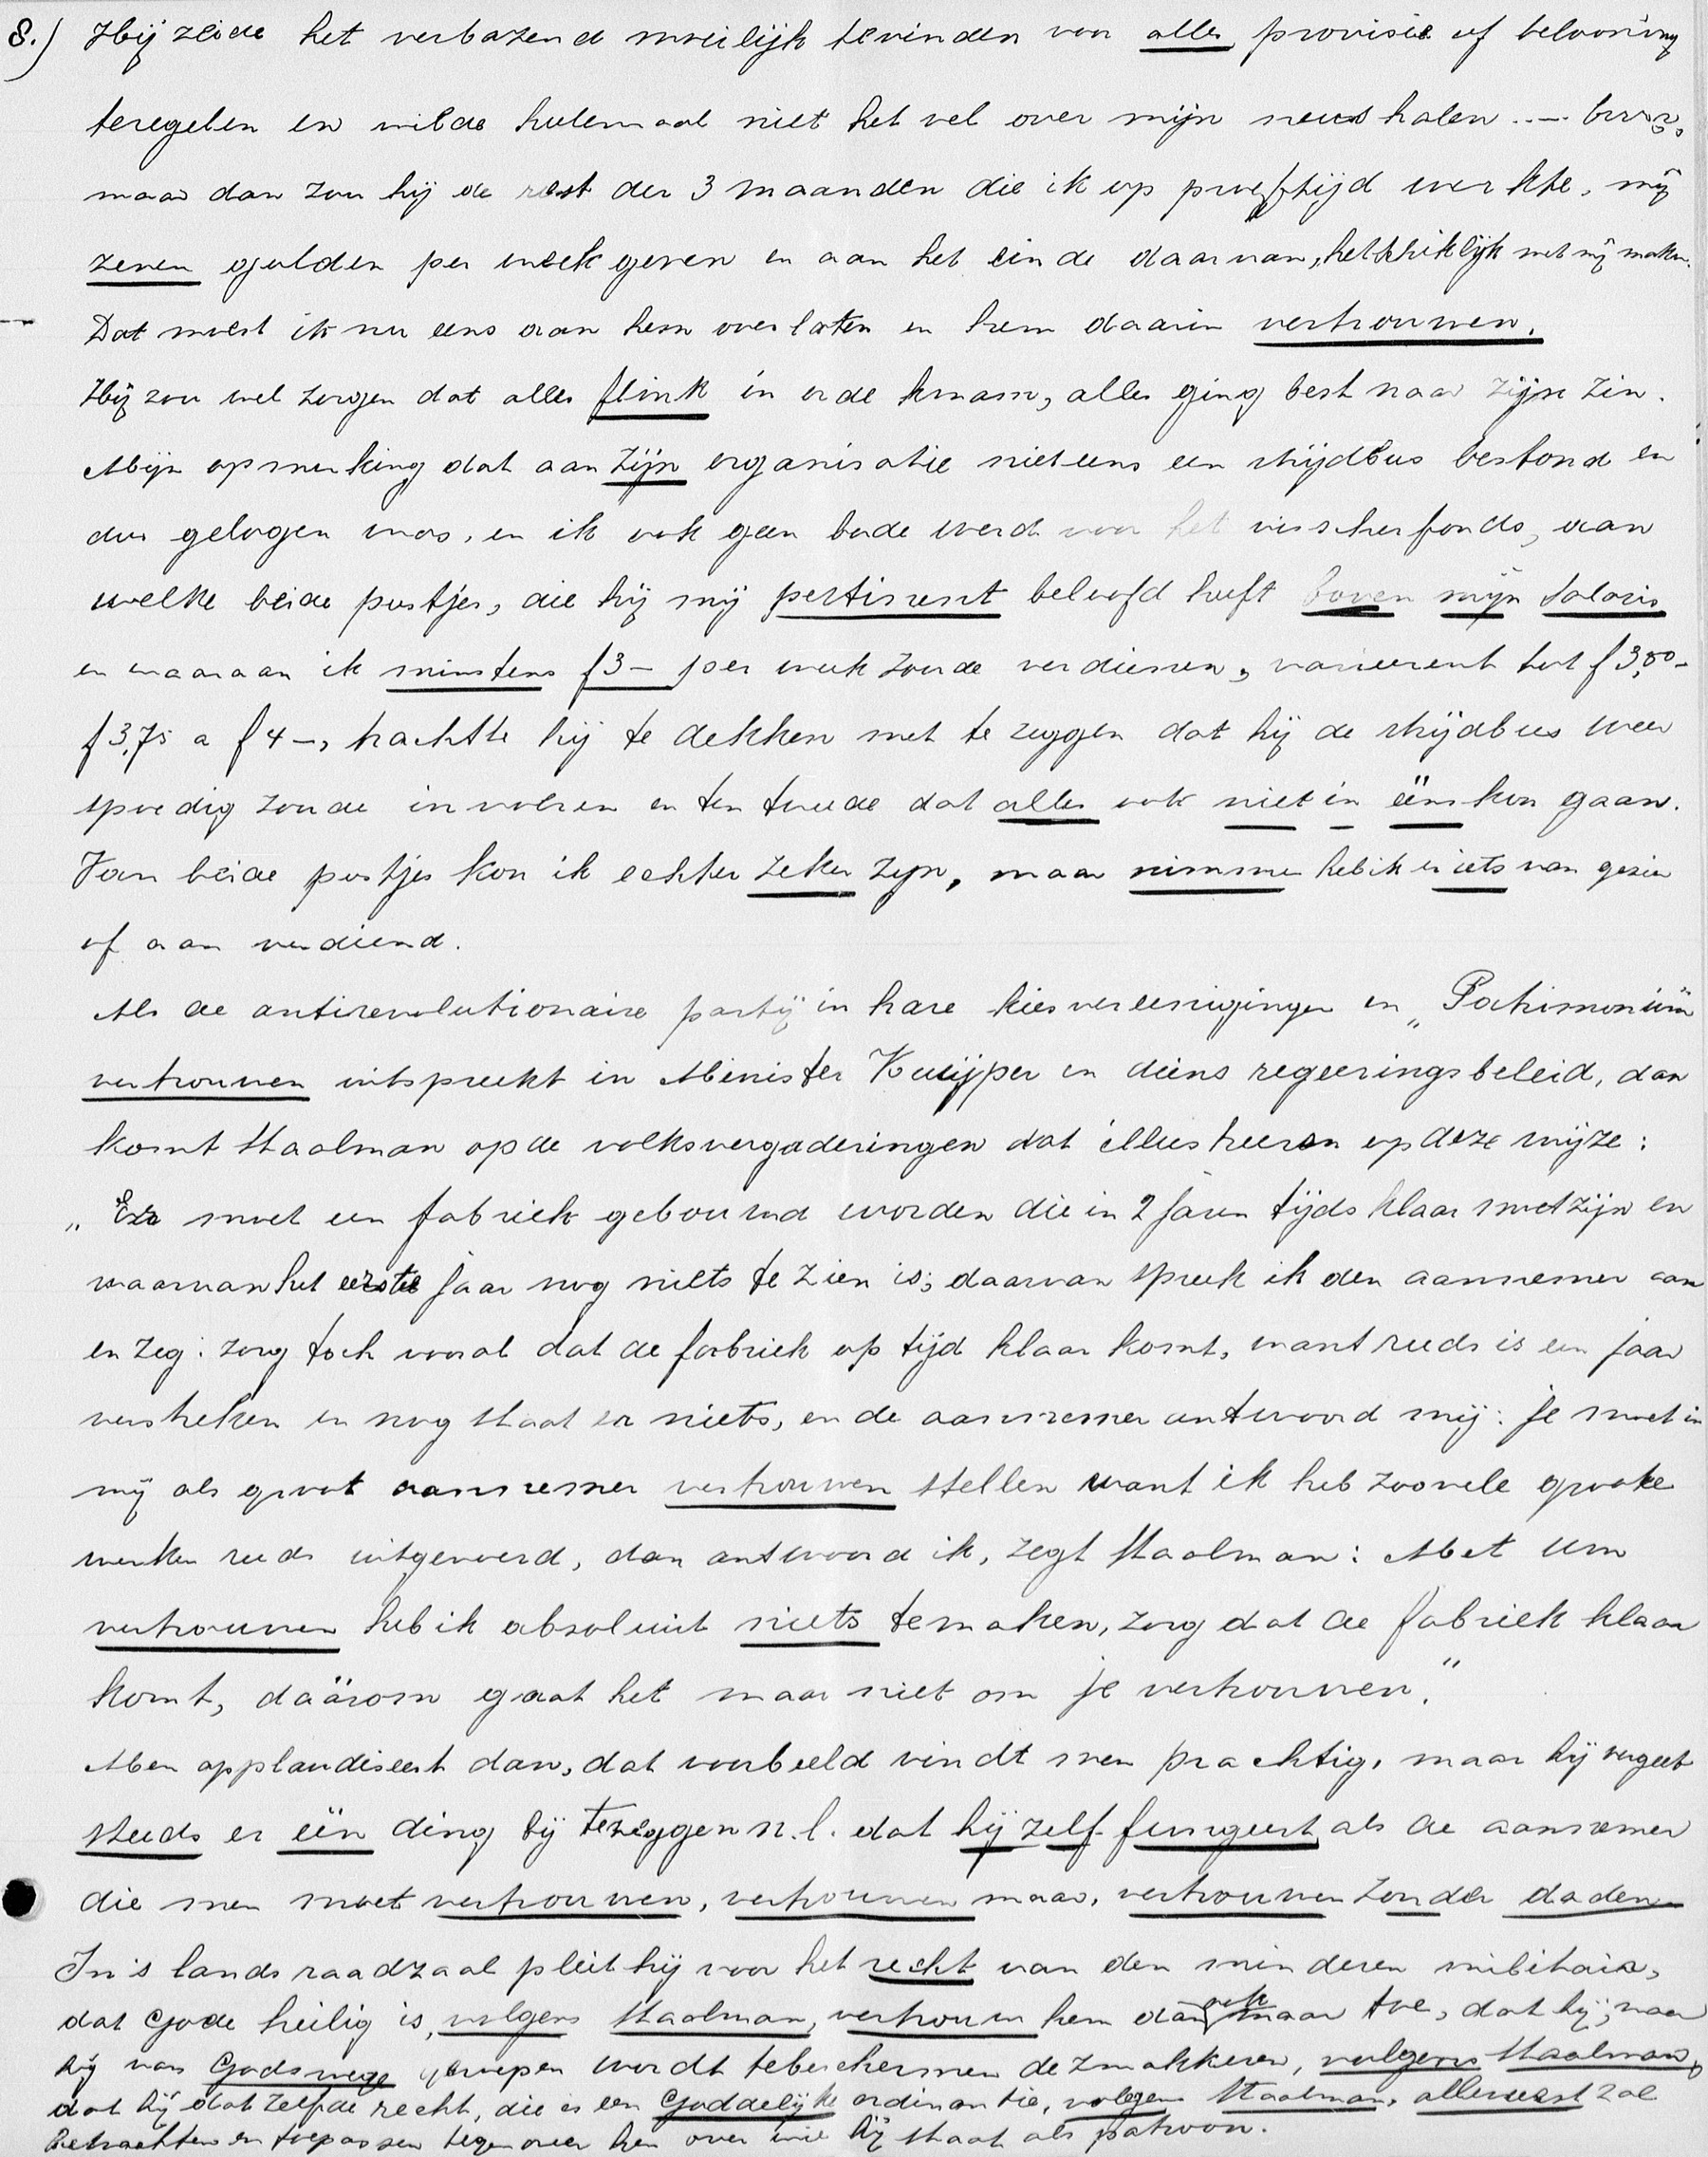 8.) Hij zeide het verbazend moeilijk te vinden voor alles provisie of belooning
teregelen en wilde heelemaal niet het vel over mijn neus halen ..—
maar dan zou hij de rest der 3 maanden die ik op proeftijd werkte, mij
zeven gulden per week geven en aan het einde daarvan, het schiklijk met mij maken.
Dat moest ik nu eens aan hem overlaten en hem daarin vertrouwen.
Hij zou wel zorgen dat alles flink in orde kwam, alles ging best naar zijn zin.
Mijn opmerking dat aan zijn organisatie niet eens een strijdbus bestond en
dus gelogen was, en ik ook geen bode werd voor het visscherfonds, aan
welke beide postjes, die hij mij pertinent beloofd heeft boven mijn salaris
en waaraan ik minstens f 3— per week zoude verdienen, varieerent tot f 3,50—
f 3,75 a f 4—, trachtte hij te dekken met te zeggen dat hij de strijdbus weer
spoedig zoude invoeren en ten tweede dat alles ook niet in ééns kon gaan.
Van beide postjes kon ik echter zeker zijn, maar nimmer heb ik er iets van gezien
of aan verdiend.
Als de antirevolutionaire partij in hare kiesvereenigingen en „Patrimonium"
vertrouwen uitspreekt in Minister Kuijper en diens regeeringsbeleid, dan
komt Staalman op de volksvergaderingen dat illustreeren op deze wijze:
„Er moet een fabriek gebouwd worden die in 2 jaren tijds klaar moet zijn en
waarvan het eerste jaar nog niets te zien is; daarvan spreek ik den aannemer aan
en zeg: zorg toch vooral dat de fabriek op tijd klaar komt, want reeds is een jaar
verstreken en nog staat er niets, en de aannemer antwoord mij: je moet in
mij als groot aannemer vertrouwen stellen want ik heb zoovele groote
werken reeds uitgevoerd, dan antwoord ik, zegt Staalman: Met uw
vertrouwen heb ik absoluut niets temaken, zorg dat de fabriek klaar
komt, dáárom gaat het maar niet om je vertrouwen."
Men applaudiseert dan, dat voorbeeld vindt men prachtig, maar hij vergeet
steeds er één ding bij tezeggen n.l. dat hij zelf fungeert als de aannemer
die men moet vertrouwen, vertrouwen maar, vertrouwen zonder daden
In 's lands raadzaal pleit hij voor het recht van den minderen militair,
dat Gode heilig is, volgens Staalman, vertrouw hem dan ook maar toe, dat hij, waar
hij van Godswege geroepen wordt tebeschermen de zwakkeren, volgens Staalman,
dat hij dat zelfde recht, die is een Goddelijke ordinantie, volgens Staalman, allereerst zal
betrachten en toepassen tegenover hen over wie hij staat als patroon.